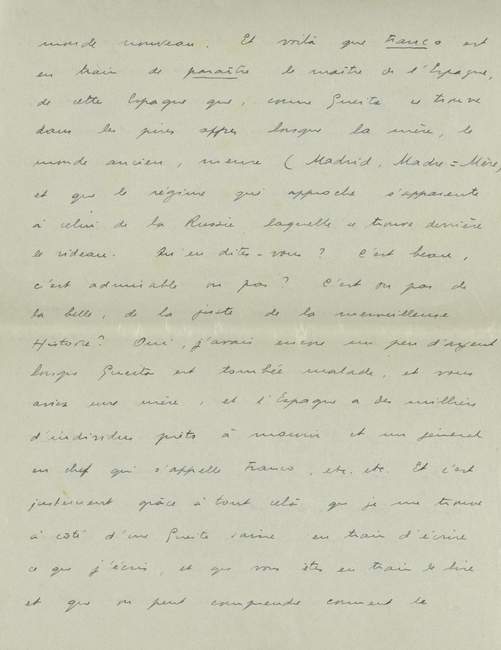 monde nouveau. Et voilà que Franco est
en train de paraître le maître de l'Espagne,
de cette Espagne que, comme Guerita se trouve
dans les pires affres lorsque la mère, le
monde ancien, meurt (Madrid, Madre = Mère)
et que le régime qui approche s'apparente
à celui de la Russie laquelle se trouve derrière
le rideau. Qu'en dites-vous? C'est beau,
c'est admirable ou pas? C'est ou pas de
la belle, de la juste de la merveilleuse
Histoire? Oui, j'avais encore un peu d'argent
lorsque Guerita est tombée malade, et vous
aviez une mère, et l'Espagne a des milliers
d'individus prêts à mourir et un général
en chef qui s'appelle Franco, etc. etc. Et c'est
justement grâce à tout celà que je me trouve
à côté d'une Guerita saine en train d'écrire
ce que j'écris, et que vous êtes en train le lire
et que on peut comprendre comment le